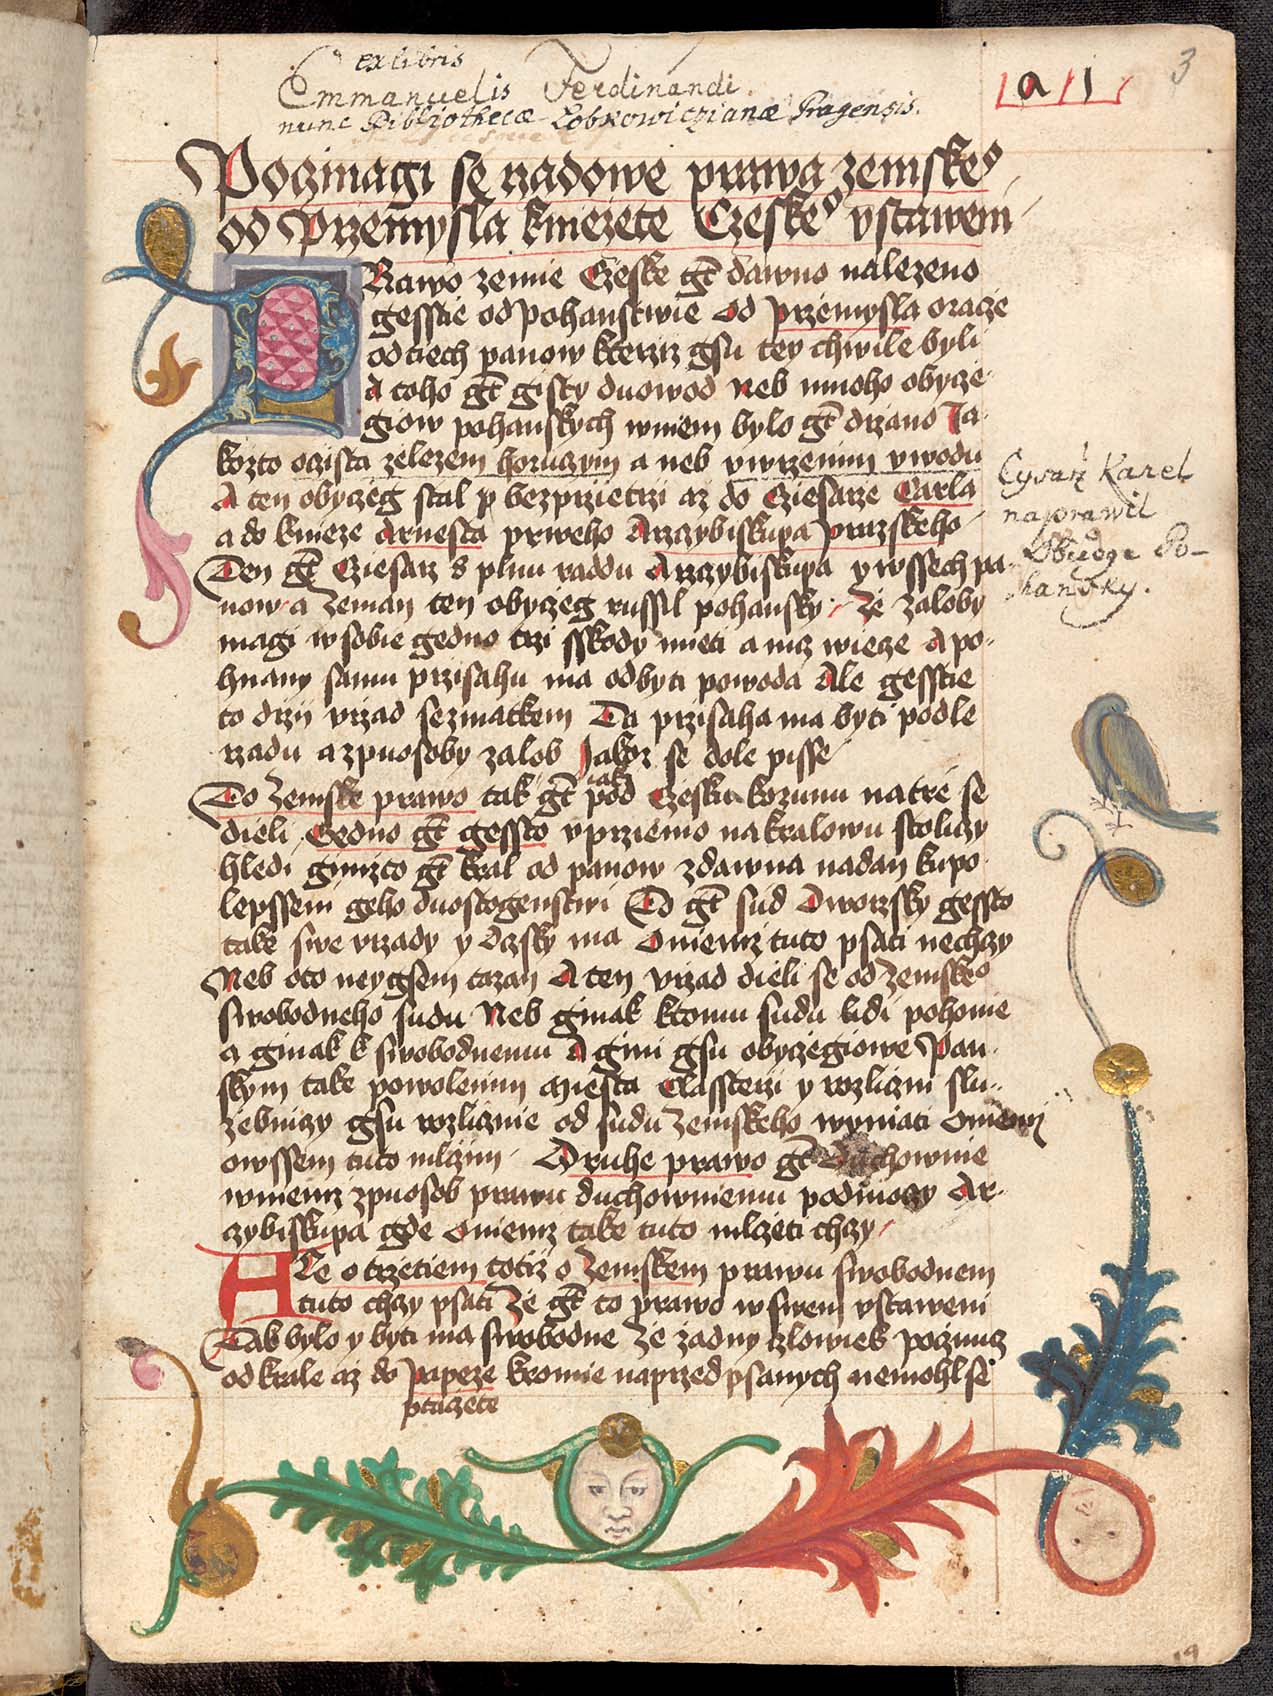 ex libris
Emmanuelis Ferdinandi
nunc Bibliothecæ Lobkowiczianæ Pragensis.
a 1
3
Poczinagi se rzadowe prawa zemskeo
od Przemysla kniezete Czeskeo vstaweni
PRawo zemie Czeske gt dawno nalezeno
gesstie od pohanstwie Od Przemysla oracze
od tiech panow kterziz gsu tey chwile byli
A toho gt gisty duowod Neb mnoho obycze
giow pohanskych wniem bylo gt drzano Ja-
kozto oczista zelezem horuczym a neb vwrzenim vwodu
A ten obyczeg stal p bezprzietrzi az do Cziesarze Carla
a do knieze Arnesta prweho Arczybiskupa Prazskeho
Ten gt Cziesarz s plnu raddu Arczybiskupa y wssech pa-
now a Zeman ten obyczeg russil pohansky Ze zaloby
magi w sobie gedno trzi sskody mieti a niz wiecze A po-
hnany samu przisahu ma odbyti powoda Ale gesstie
to drzij vrzad se zmatkem Ta przisaha ma byti podle
rzadu a zpuosoby zalob Jakoz se dole pisse
iakz
To Zemske prawo tak gt pod Czesku korunu na tré se
dieli Gedno gt gessto vprziemo na kralowu stoliczy
hledi gimzto gt kral od panow zdawna nadan kupo-
lepsseni geho duostogenstwi To gt sud Dworzsky gessto
take swe vrzady y dczky ma Oniemz tuto psati nechczy
Neb oto neygsem tazan A ten vrzad dieli se od zemskeo
swobodneho sudu Neb ginak ktomu sudu lidi pohonie
a ginak k swobodnemu A gini gsu obyczegiowe Pan-
skym take powolenim Miesta Classterzi y rozliczni slu-
zebniczy gsu rozlicznie od sudu zemskeho wyniati Oniemz
owssem tuto mlczim Druhe prawo gt Duchownie
wniemz zpuosob prawu duchowniemu pod moczy Ar-
czybiskupa gde Oniemz take tuto mlczeti chczy
ALe o trzetiem totiz o Zemskem prawu swobodnem
tuto chczy psati Ze gt to prawo w swem vstaweni
Tak bylo y byti ma swobodne Ze zadny czlowiek poczinuz
od krale az do Papeze kromie naprzed psanych nemohl se
ptaczete
Cysarz Karel
naprawil
Obyčege Po-
hansky.